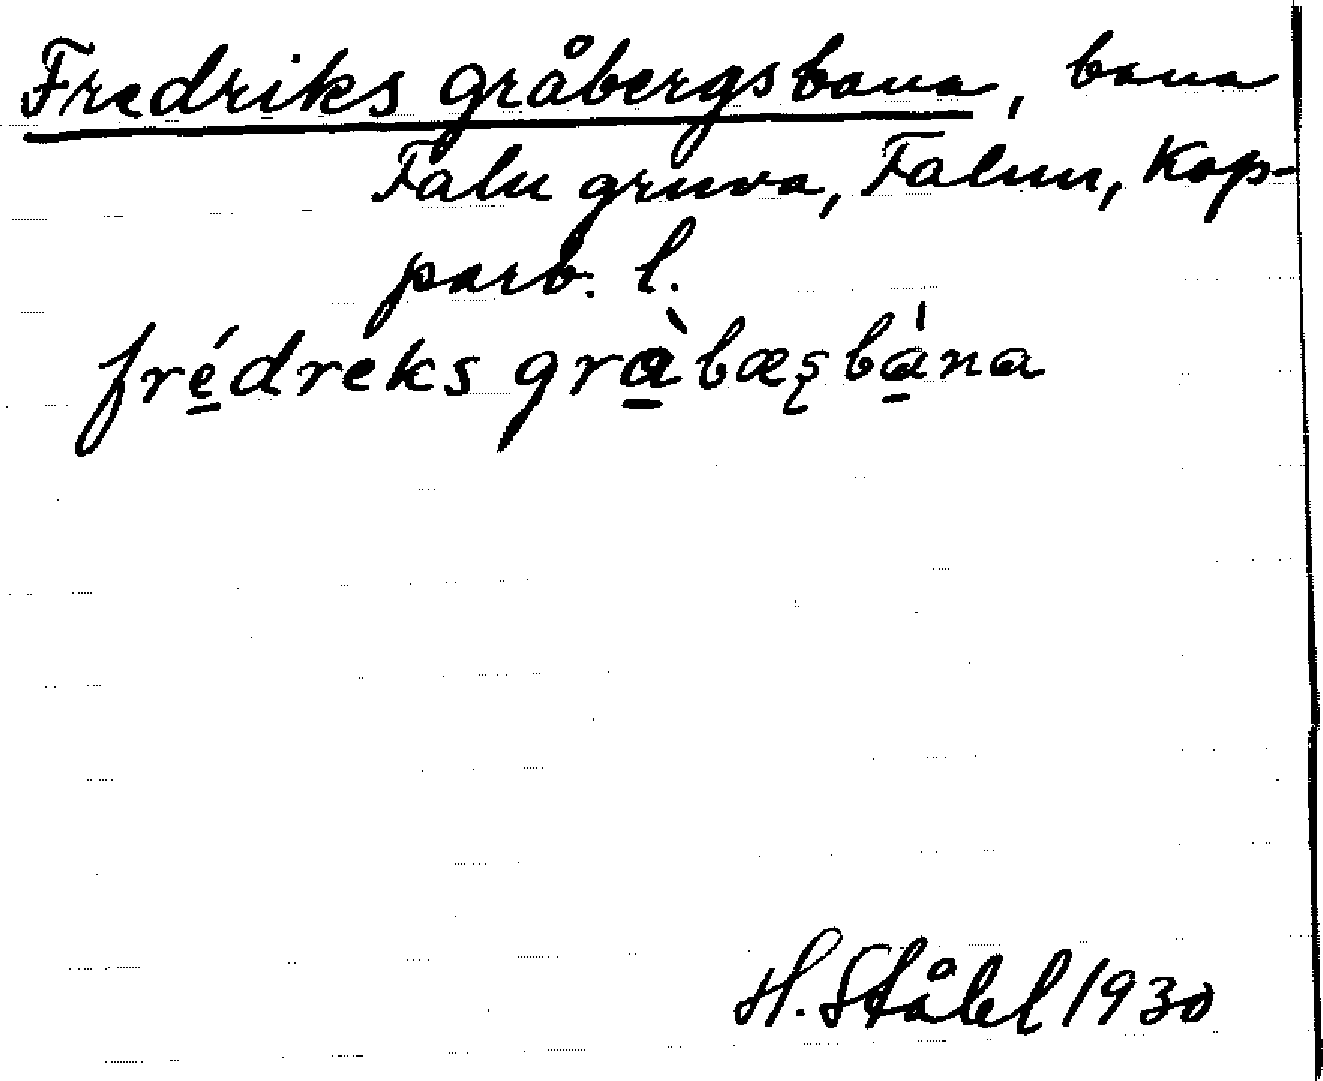 Fredriks gråbergsbana, bana
Falu gruva, Falun, Kop-
parb. l.
fré̠dreks grà̠bæşbá̠na
H. Ståhl 1930